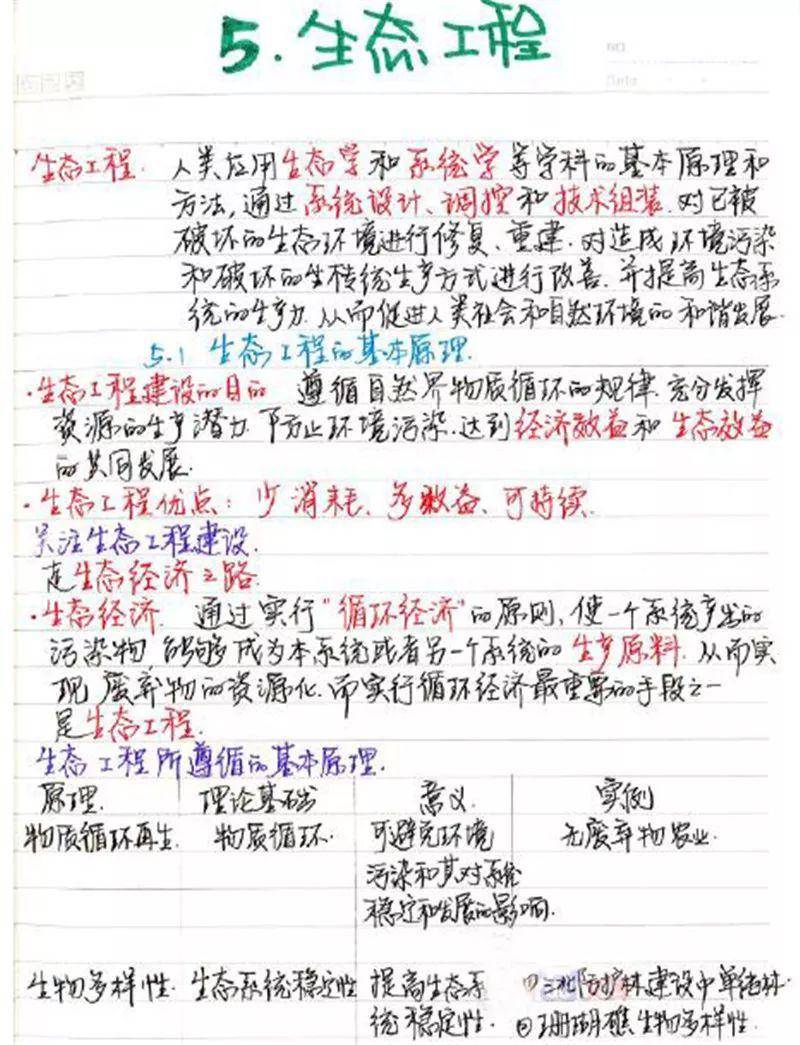 5.生态工程
NO.
Date
生态工程. 人类应用生态学和系统学等学科的基本原理和
方法,通过系统设计、调控和技术组装.对已被
破坏的生态环境进行修复、重建.对造成环境污染
和破坏的传统生产方式进行改善.并提高生态系
统的生产力.从而促进人类社会和自然环境的和谐发展.
5.1 生态工程的基本原理.
·生态工程建设的目的 遵循自然界物质循环的规律.充分发挥
资源的生产潜力.防止环境污染.达到经济效益和生态效益
的共同发展.
·生态工程优点:少消耗、多效益、可持续.
关注生态工程建设.
走生态经济之路.
·生态经济. 通过实行"循环经济"的原则,使一个系统产出的
污染物能够成为本系统或者另一个系统的生产原料.从而实
现废弃物的资源化.而实行循环经济最重要的手段之一
是生态工程.
生态工程所遵循的基本原理.
原理. 理论基础 意义. 实例
物质循环再生. 物质循环. 可避免环境 无废弃物农业.
污染和其对系统
稳定和发展的影响.
生物多样性. 生态系统稳定性 提高生态系 ①三北防护林建设中单纯林
统稳定性. ②珊瑚礁生物多样性.